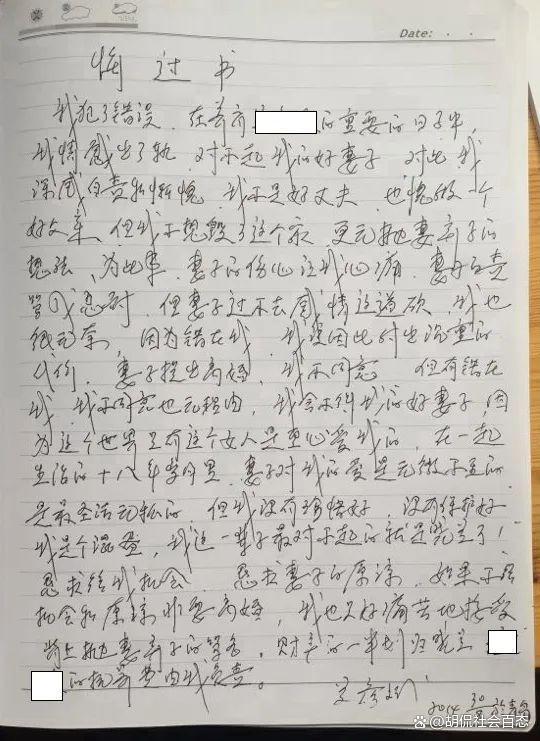 Date: . .
悔过书
我犯了错误，在养育 的重要的日子中，
我情感出了轨，对不起我的好妻子，对此，我
深感自责和惭愧，我不是好丈夫，也愧做一个
好父亲，但我不想毁了这个家，更无抛妻弃子的
想法，为此事，妻子的伤心让我心痛，妻
但妻子过不去感情这道砍，我也
很无奈，因为错在我，我要因此付出沉重的
代价，妻子提出离婚，我不同意，但有错在
我，我不同意也无理由，我舍不得我的好妻子，因
为这个世界只有这个女人是真心爱我的，在一起
生活的十八年岁月里，妻子对我的爱是无微不至的
是最圣洁无私的，但我没有珍惜好，没有保护好
我是个混蛋，我这一辈子最对不起的就是晓兰了！
恳求给我机会，恳求妻子的原谅，如果不给
机会和原谅非要离婚，我也只好痛苦地接受
背上抛妻弃子的罪名，财产的一半划归晓兰
的抚养费由我负责。
2014
@胡侃社会百态